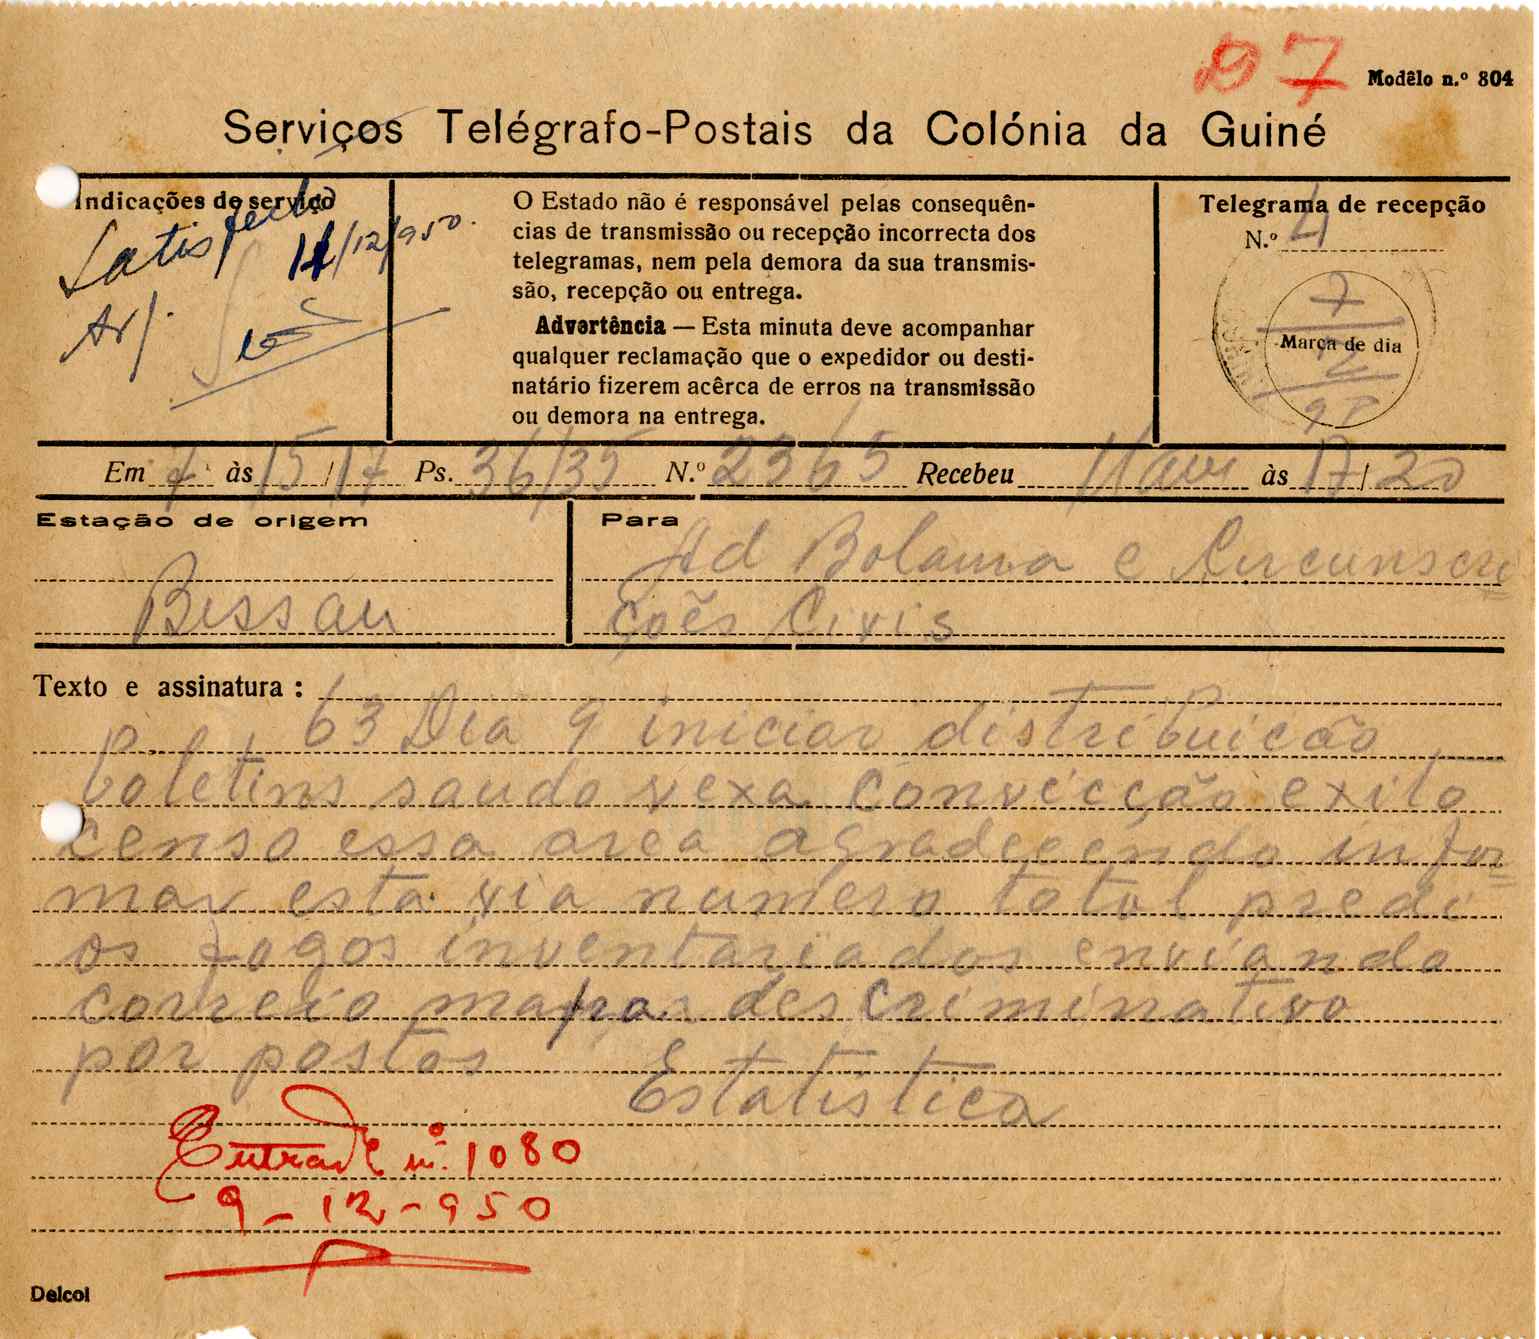 D7
Modêlo n.º 804
Serviços Telégrafo-Postais da Colónia da Guiné
Indicações de serviço
Satisfeito
11/12/950.
Arj.
O Estado não é responsável pelas consequên-
cias de transmissão ou recepção incorrecta dos
telegramas, nem pela demora da sua transmis-
são, recepção ou entrega.
Advertência — Esta minuta deve acompanhar
qualquer reclamação que o expedidor ou desti-
natário fizerem acêrca de erros na transmissão
ou demora na entrega.
Telegrama de recepção
N.º 4
7
Marca de dia
12
Em 7 às 15/17 Ps. 36/35 N.º 2365 Recebeu às 17/20
Estação de origem
Bissau
Para
Ad Bolama e Circunscri
ções Civis
Texto e assinatura:
63 Dia 9 iniciar distribuição
boletins saudo vexa convicção exito
censo essa area agradecendo infor
mar esta via numero total predi
os fogos inventariados enviando
correio mapas descriminativo
por postos Estatistica
Entrada n.º 1080
9-12-950
Delcol